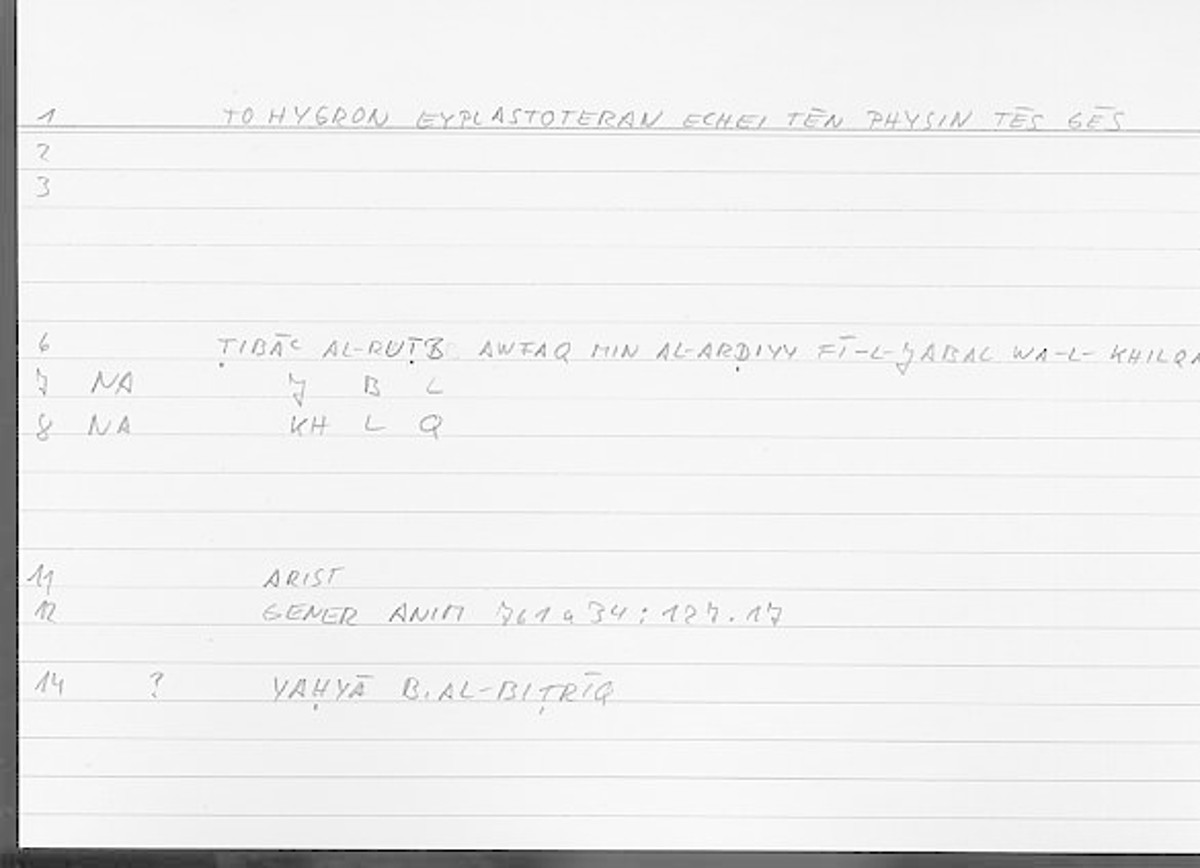 1 TO HYGRON EYPLASTOTERAN ECHEI TĒN PHYSIN TĒS GĒS
2
3
6 ṬIBĀʿ AL-RUṬB AWFAQ MIN AL-ARḌIYY FĪ-L-JABAL WA-L- KHILQA
7 NA J B L
8 NA KH L Q
11 ARIST
12 GENER ANIM 761 a 34 : 127.17
14 ? YAḤYĀ B. AL-BIṬRĪQ